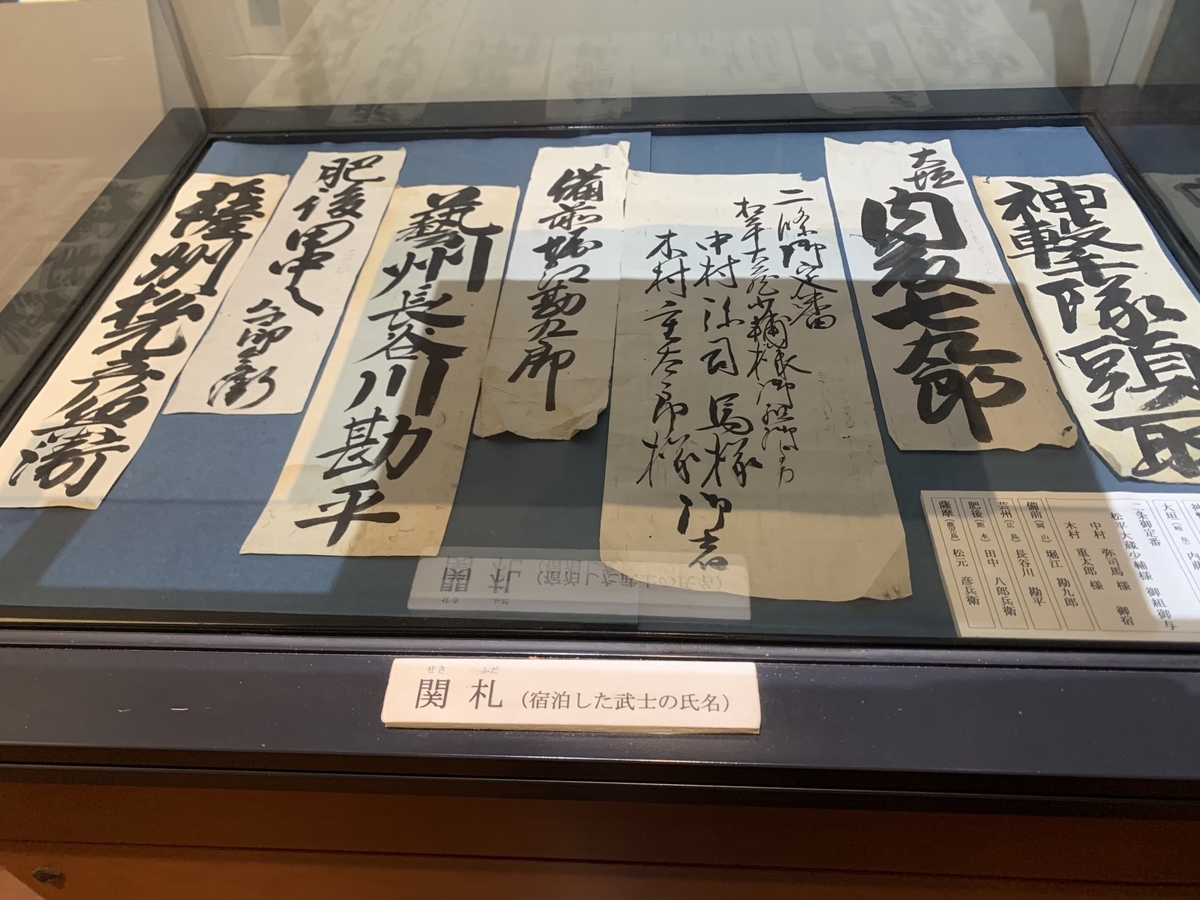 神撃隊頭取
大垣
内藤七太郎
二條御定番
松平大蔵少輔様御組御与力
中村弥司馬様
木村重太郎様
御宿
備前堀江勘九郎
藝州長谷川勘平
肥後田中八郎兵衛
薩州松元彦兵衛
大垣
内藤
二条御定番
松平大蔵少輔様 御組御与
中村 弥司馬 様 御宿
木村 重太郎 様
備前(岡山) 堀江 勘九郎
芸州(広島) 長谷川 勘平
肥後(熊本) 田中 八郎兵衛
薩摩(鹿児島) 松元 彦兵衛
せき ふだ
関 札 (宿泊した武士の氏名)